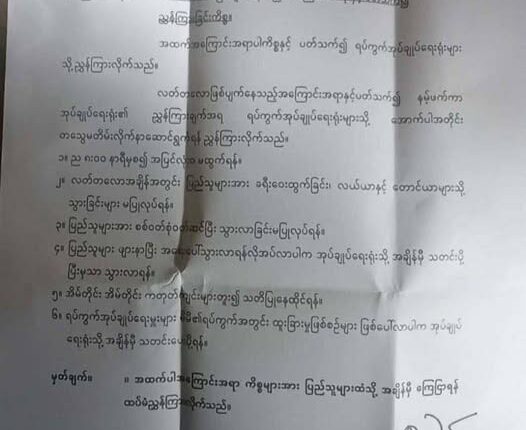 ညွှန်ကြားခြင်းကိစ္စ။
အထက်အကြောင်းအရာပါကိစ္စနှင့် ပတ်သက်၍ ရပ်ကွက်အုပ်ချုပ်ရေးရုံးများ
သို့ညွှန်ကြားလိုက်သည်။
လတ်တလောဖြစ်ပျက်နေသည့်အကြောင်းအရာနှင့်ပတ်သက်၍ နမ့်ဖက်ကာ
အုပ်ချုပ်ရေးရုံး၏ ညွှန်ကြားချက်အရ ရပ်ကွက်အုပ်ချုပ်ရေးရုံးများသို့ အောက်ပါအတိုင်း
တသွေမတိမ်းလိုက်နာဆောင်ရွက်ရန် ညွှန်ကြားလိုက်သည်။
၁။ ည နာရီမှစ၍ အပြင်လုံးဝ မထွက်ရန်။
၂။ လတ်တလောအချိန်အတွင်း ပြည်သူများအား ခရီးဝေးထွက်ခြင်း၊ လယ်ယာနှင့် တောင်ယာများသို့
သွားခြင်းများ မပြုလုပ်ရန်။
၃။ ပြည်သူများအား စစ်ဝတ်စုံဝတ်ဆင်ပြီး သွားလာခြင်းမပြုလုပ်ရန်။
၄။ ပြည်သူများ ဖျားနာပြီး အရေးပေါ်သွားလာရန်လိုအပ်လာပါက အုပ်ချုပ်ရေးရုံးသို့ အချိန်မှီ သတင်းပို့
ပြီးမှသာ သွားလာရန်။
၅။ အိမ်တိုင်း အိမ်တိုင်း ကတုတ်ကျင်းများတူး၍ သတိပြုနေထိုင်ရန်။
၆။ ရပ်ကွက်အုပ်ချုပ်ရေးမှူးများ မိမိ၏ရပ်ကွက်အတွင်း ထူးခြားမှုဖြစ်စဉ်များ ဖြစ်ပေါ်လာပါက အုပ်ချုပ်
ရေးရုံးသို့ အချိန်မှီ သတင်းပေးပို့ရန်။
မှတ်ချက်။ ။ အထက်ပါအကြောင်းအရာ ကိစ္စများအား ပြည်သူများထံသို့ အချိန်မှီ ကြေငြာရန်
ထပ်မံညွှန်ကြားလိုက်သည်။